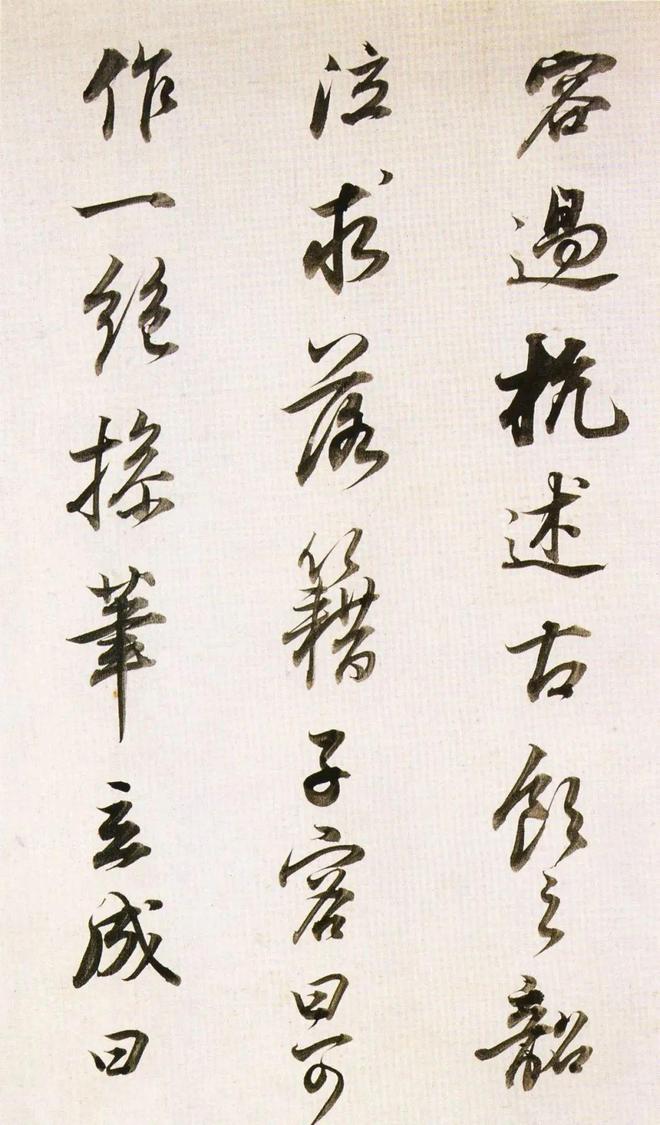 容過杭述古飲之韶
泣求落籍子容曰可
作一絕援筆立成曰